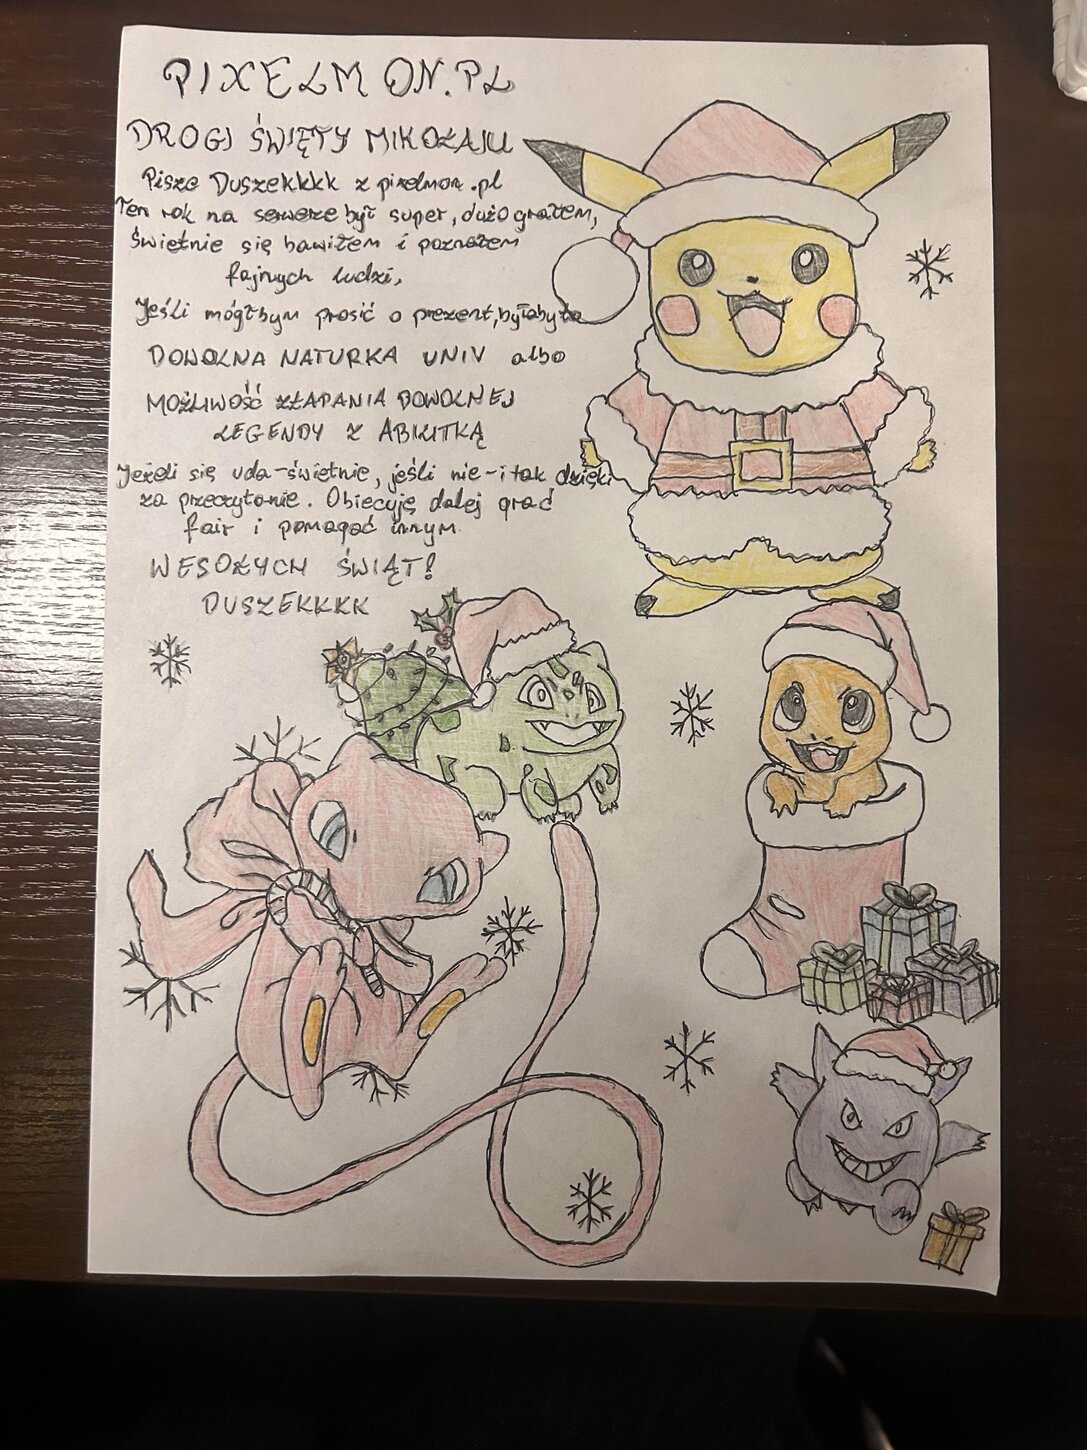 PIXELMON.PL
DROGI ŚWIĘTY MIKOŁAJU
Pisze Duszekkkk z pixelmon.pl
Ten rok na serwerze był super, dużo grałem,
świetnie się bawiłem i poznałem
fajnych ludzi,
Jeśli mógłbym prosić o prezent, byłaby to
DOWOLNA NATURKA UNIV albo
MOŻLIWOŚĆ ZŁAPANIA DOWOLNEJ
LEGENDY Z ABILITKĄ
Jeżeli się uda-świetnie, jeśli nie-i tak dzięki
za przeczytanie. Obiecuję dalej grać
fair i pomagać innym.
WESOŁYCH ŚWIĄT!
DUSZEKKKK